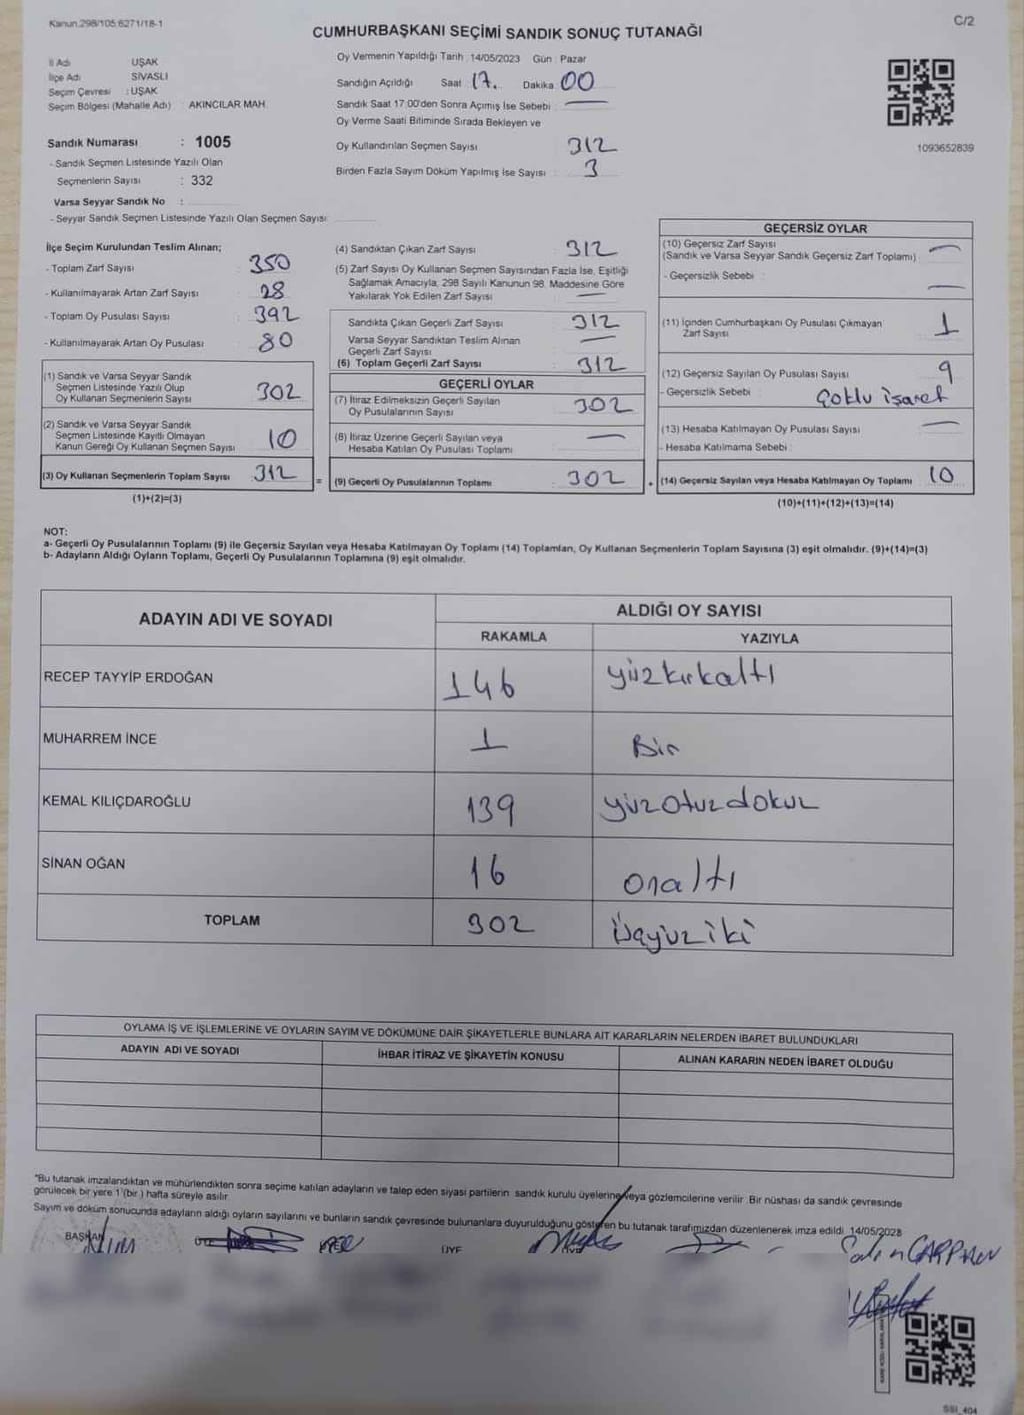 Kanun.298/105.6271/18-1
C/2
CUMHURBAŞKANI SEÇİMİ SANDIK SONUÇ TUTANAĞI
İl Adı : UŞAK
İlçe Adı : SİVASLI
Seçim Çevresi : UŞAK
Seçim Bölgesi (Mahalle Adı) : AKINCILAR MAH.
Oy Vermenin Yapıldığı Tarih : 14/05/2023 Gün : Pazar
Sandığın Açıldığı Saat 17. Dakika 00
Sandık Saat 17:00'den Sonra Açımış İse Sebebi : —
Oy Verme Saati Bitiminde Sırada Bekleyen ve
Oy Kullandırılan Seçmen Sayısı 312
Birden Fazla Sayım Döküm Yapılmış İse Sayısı : 3
1093652839
Sandık Numarası : 1005
- Sandık Seçmen Listesinde Yazılı Olan
Seçmenlerin Sayısı : 332
Varsa Seyyar Sandık No :
- Seyyar Sandık Seçmen Listesinde Yazılı Olan Seçmen Sayısı:
İlçe Seçim Kurulundan Teslim Alınan;
- Toplam Zarf Sayısı : 350
- Kullanılmayarak Artan Zarf Sayısı : 28
- Toplam Oy Pusulası Sayısı : 392
- Kullanılmayarak Artan Oy Pusulası : 80
(1) Sandık ve Varsa Seyyar Sandık
Seçmen Listesinde Yazılı Olup
Oy Kullanan Seçmenlerin Sayısı 302
(2) Sandık ve Varsa Seyyar Sandık
Seçmen Listesinde Kayıtlı Olmayan
Kanun Gereği Oy Kullanan Seçmen Sayısı 10
(3) Oy Kullanan Seçmenlerin Toplam Sayısı 312
(1)+(2)=(3)
=
(4) Sandıktan Çıkan Zarf Sayısı : 312
(5) Zarf Sayısı Oy Kullanan Seçmen Sayısından Fazla İse, Eşitliği
Sağlamak Amacıyla, 298 Sayılı Kanunun 98. Maddesine Göre
Yakılarak Yok Edilen Zarf Sayısı : —
Sandıkta Çıkan Geçerli Zarf Sayısı : 312
Varsa Seyyar Sandıktan Teslim Alınan
Geçerli Zarf Sayısı: —
(6) Toplam Geçerli Zarf Sayısı : 312
GEÇERLİ OYLAR
(7) İtiraz Edilmeksizin Geçerli Sayılan
Oy Pusulalarının Sayısı : 302
(8) İtiraz Üzerine Geçerli Sayılan veya
Hesaba Katılan Oy Pusulası Toplamı : —
(9) Geçerli Oy Pusulalarının Toplamı : 302
+
GEÇERSİZ OYLAR
(10) Geçersiz Zarf Sayısı
(Sandık ve Varsa Seyyar Sandık Geçersiz Zarf Toplamı) —
- Geçersizlik Sebebi : —
(11) İçinden Cumhurbaşkanı Oy Pusulası Çıkmayan
Zarf Sayısı 1
(12) Geçersiz Sayılan Oy Pusulası Sayısı : 9
- Geçersizlik Sebebi : Çoklu işaret
(13) Hesaba Katılmayan Oy Pusulası Sayısı —
- Hesaba Katılmama Sebebi :
(14) Geçersiz Sayılan veya Hesaba Katılmayan Oy Toplamı 10
(10)+(11)+(12)+(13)=(14)
NOT:
a- Geçerli Oy Pusulalarının Toplamı (9) ile Geçersiz Sayılan veya Hesaba Katılmayan Oy Toplamı (14) Toplamları, Oy Kullanan Seçmenlerin Toplam Sayısına (3) eşit olmalıdır. (9)+(14)=(3)
b- Adayların Aldığı Oyların Toplamı, Geçerli Oy Pusulalarının Toplamına (9) eşit olmalıdır.
ADAYIN ADI VE SOYADI
ALDIĞI OY SAYISI
RAKAMLA YAZIYLA
RECEP TAYYİP ERDOĞAN 146 yüzkırkaltı
MUHARREM İNCE 1 Bir
KEMAL KILIÇDAROĞLU 139 yüzotuzdokuz
SİNAN OĞAN 16 onaltı
TOPLAM 302 üçyüziki
OYLAMA İŞ VE İŞLEMLERİNE VE OYLARIN SAYIM VE DÖKÜMÜNE DAİR ŞİKAYETLERLE BUNLARA AİT KARARLARIN NELERDEN İBARET BULUNDUKLARI
ADAYIN ADI VE SOYADI İHBAR İTİRAZ VE ŞİKAYETİN KONUSU ALINAN KARARIN NEDEN İBARET OLDUĞU
*Bu tutanak imzalandıktan ve mühürlendikten sonra seçime katılan adayların ve talep eden siyasi partilerin sandık kurulu üyelerine veya gözlemcilerine verilir. Bir nüshası da sandık çevresinde
görülecek bir yere 1 (bir) hafta süreyle asılır.
Sayım ve döküm sonucunda adayların aldığı oyların sayılarını ve bunların sandık çevresinde bulunanlara duyurulduğunu gösteren bu tutanak tarafımızdan düzenlenerek imza edildi. 14/05/2028
BAŞKAN ÜYE ÜYE
SSI_404